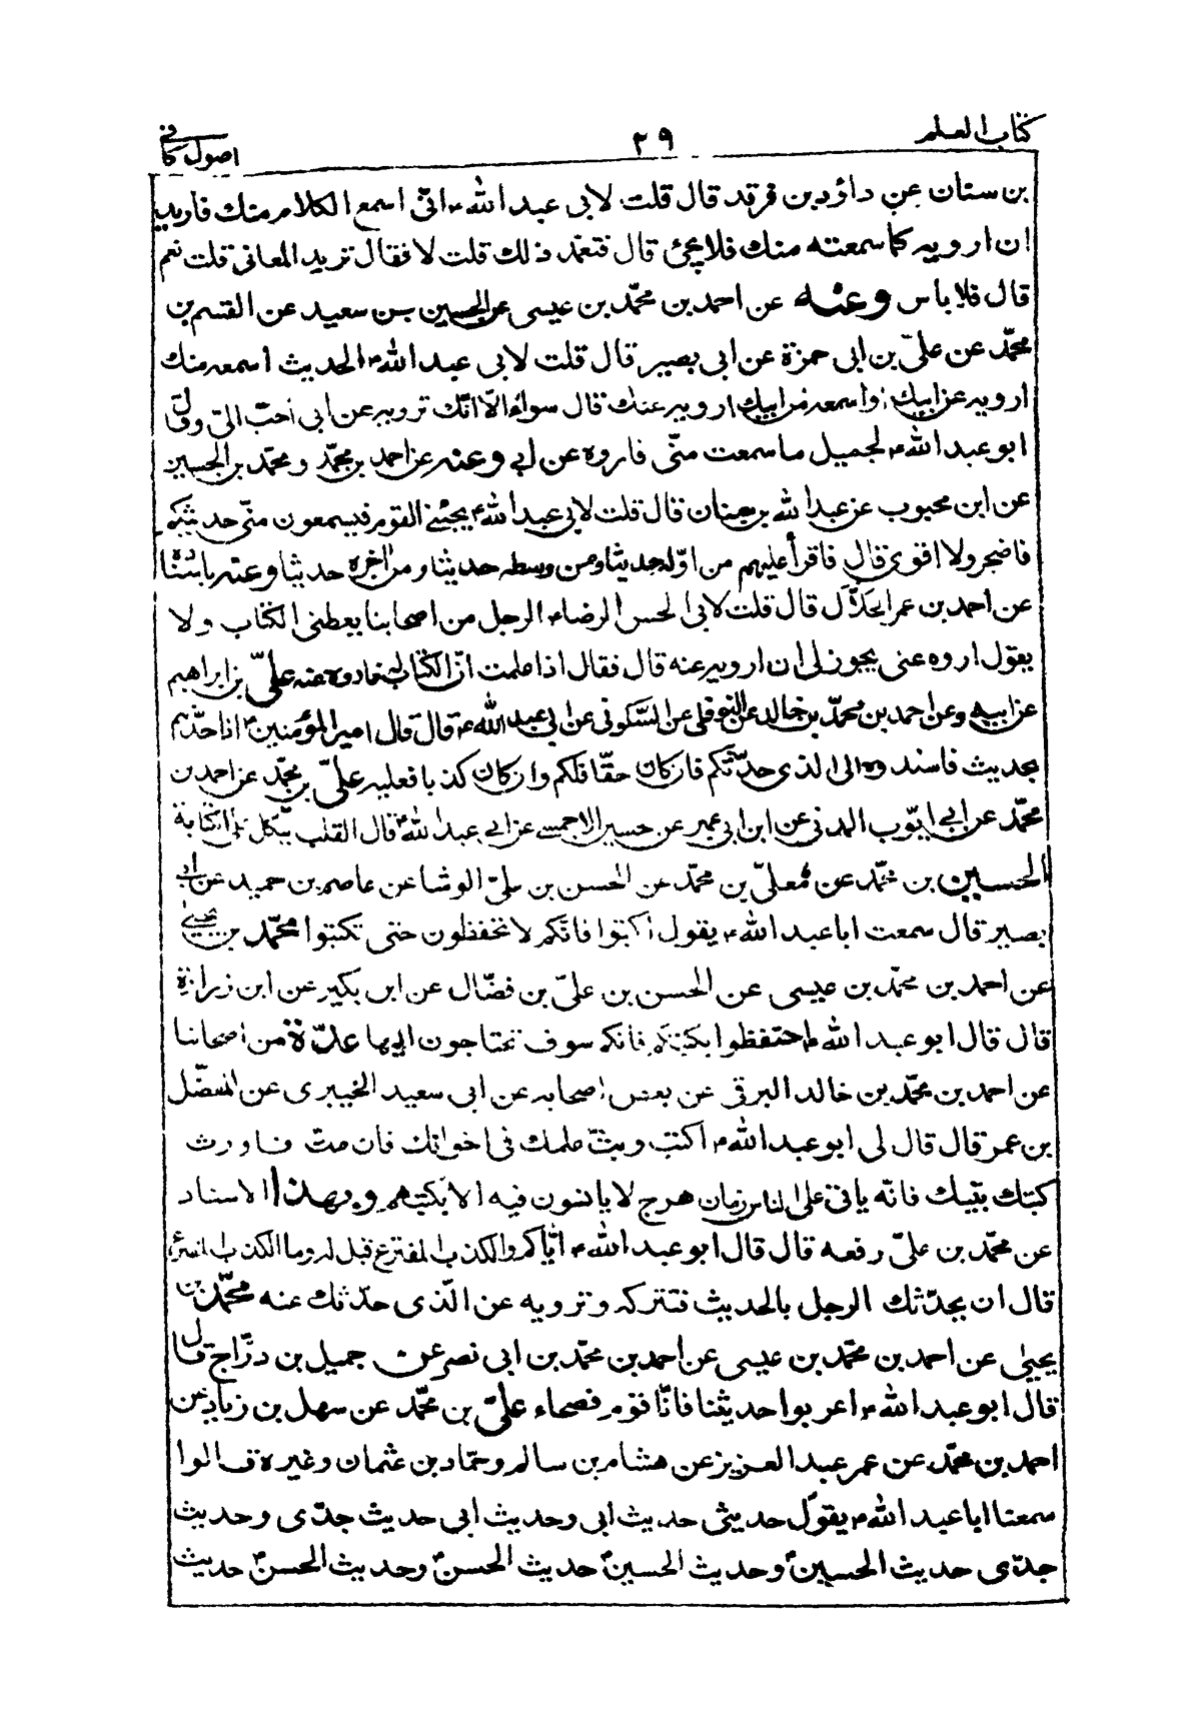 كتاب العلم
٢٩
اصول كافي
بن سنان عن داؤد بن فرقد قال قلت لابى عبد الله ع انّى اسمع الكلام منك فاريد
ان ارويه كما سمعته منك فلا يجئ قال فتعمّد ذلك قلت لا فقال تريد المعانى قلت نعم
قال فلا باس وعنه عن احمد بن محمّد بن عيسى عن الحسين بن سعيد عن القسم بن
محمّد عن علىّ بن ابى حمزة عن ابى بصير قال قلت لابى عبد الله ع الحديث اسمعه منك
ارويه عن ابيك او اسمعه من ابيك ارويه عنك قال سواء الّا انّك ترويه عن ابى احبّ الىّ وقال
ابو عبد الله ع لجميل ما سمعت منّى فاروه عن ابى وعنه عن احمد بن محمّد و محمّد بن الحسين
عن ابن محبوب عن عبد الله بن سنان قال قلت لابى عبد الله ع يجيئنى القوم فيسمعون منّى حديثكم
فاضجر ولا اقوى قال فاقرأ عليهم من اوّله حديثا ومن وسطه حديثا ومن اخره حديثا وعنه باسناده
عن احمد بن عمر الحلّال قال قلت لابى الحسن الرضا ع الرجل من اصحابنا يعطنى الكتاب ولا
يقول اروه عنى يجوز لى ان ارويه عنه قال فقال اذا علمت انّ الكتاب له فاروه عنه علىّ بن ابراهيم
عن ابيه وعن احمد بن محمّد بن خالد عن النوفلى عن السّكونى عن ابى عبد الله ع قال قال امير المؤمنين ع اذا حدّثتم
بحديث فاسندوه الى الذى حدّثكم فان كان حقّا فلكم وان كان كذبا فعليه علىّ بن محمّد عن احمد بن
محمّد عن ابى ايّوب المدنى عن ابن ابى عمير عن حسين الاحمسى عن ابى عبد الله ع قال القلب يتّكل على الكتابة
الحسين بن محمّد عن مُعلىّ بن محمّد عن الحسن بن علىّ الوشا عن عاصم بن حميد عن ابى
بصير قال سمعت ابا عبد الله ع يقول اكتبوا فانّكم لا تحفظون حتى تكتبوا محمّد بن يحيى
عن احمد بن محمّد بن عيسى عن الحسن بن علىّ بن فضّال عن ابن بكير عن ابن زرارة
قال قال ابو عبد الله ع احتفظوا بكتبكم فانكم سوف تحتاجون اليها عدّة من اصحابنا
عن احمد بن محمّد بن خالد البرقى عن بعض اصحابه عن ابى سعيد الخيبرى عن المفضّل
بن عمر قال قال لى ابو عبد الله ع اكتب وبثّ علمك فى اخوانك فان متّ فاورث
كتبك بنيك فانّه ياتى على الناس زمان هرج لا يانسون فيه الا بكتبهم وبهذا الاسناد
عن محمّد بن علىّ رفعه قال قال ابو عبد الله ع ايّاكم والكذب المفترع قيل له وما الكذب المفترع
قال ان يحدّثك الرجل بالحديث فتتركه وترويه عن الّذى حدّثك عنه محمّد بن
يحيىٰ عن احمد بن محمّد بن عيسى عن احمد بن محمّد بن ابى نصر عن جميل بن درّاج قال
قال ابو عبد الله ع اعربوا حديثنا فانّا قوم فصحاء علىّ بن محمّد عن سهل بن زياد عن
احمد بن محمّد عن عمر عبد العزيز عن هشام بن سالم وحمّاد بن عثمان وغيره قالوا
سمعنا ابا عبد الله ع يقول حديثى حديث ابى وحديث ابى حديث جدّى وحديث
جدّى حديث الحسين ع وحديث الحسين ع حديث الحسن ع وحديث الحسن ع حديث